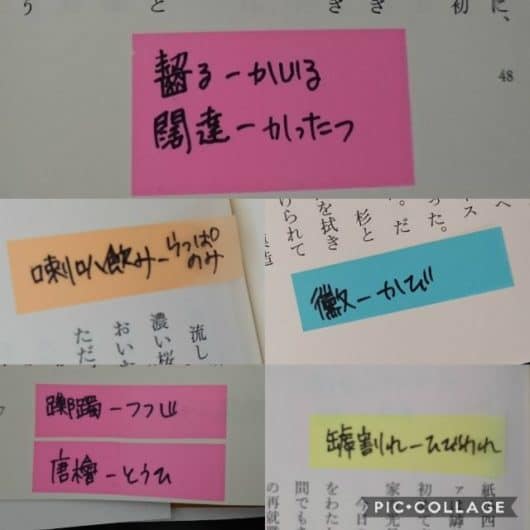 に、
初
き
と
う
48
齧る－かじる
闊達－かったつ
喇叭飲み－らっぱ
のみ
流し
濃い桜
おい
ただ
へ
ス
った。
。だ
杉と
を拭き
けられて
黴－かび
躑躅－つつじ
唐檜－とうひ
罅割れ－ひびわれ
紙
初
家
をわた
間でも
の再就職
PIC•COLLAGE